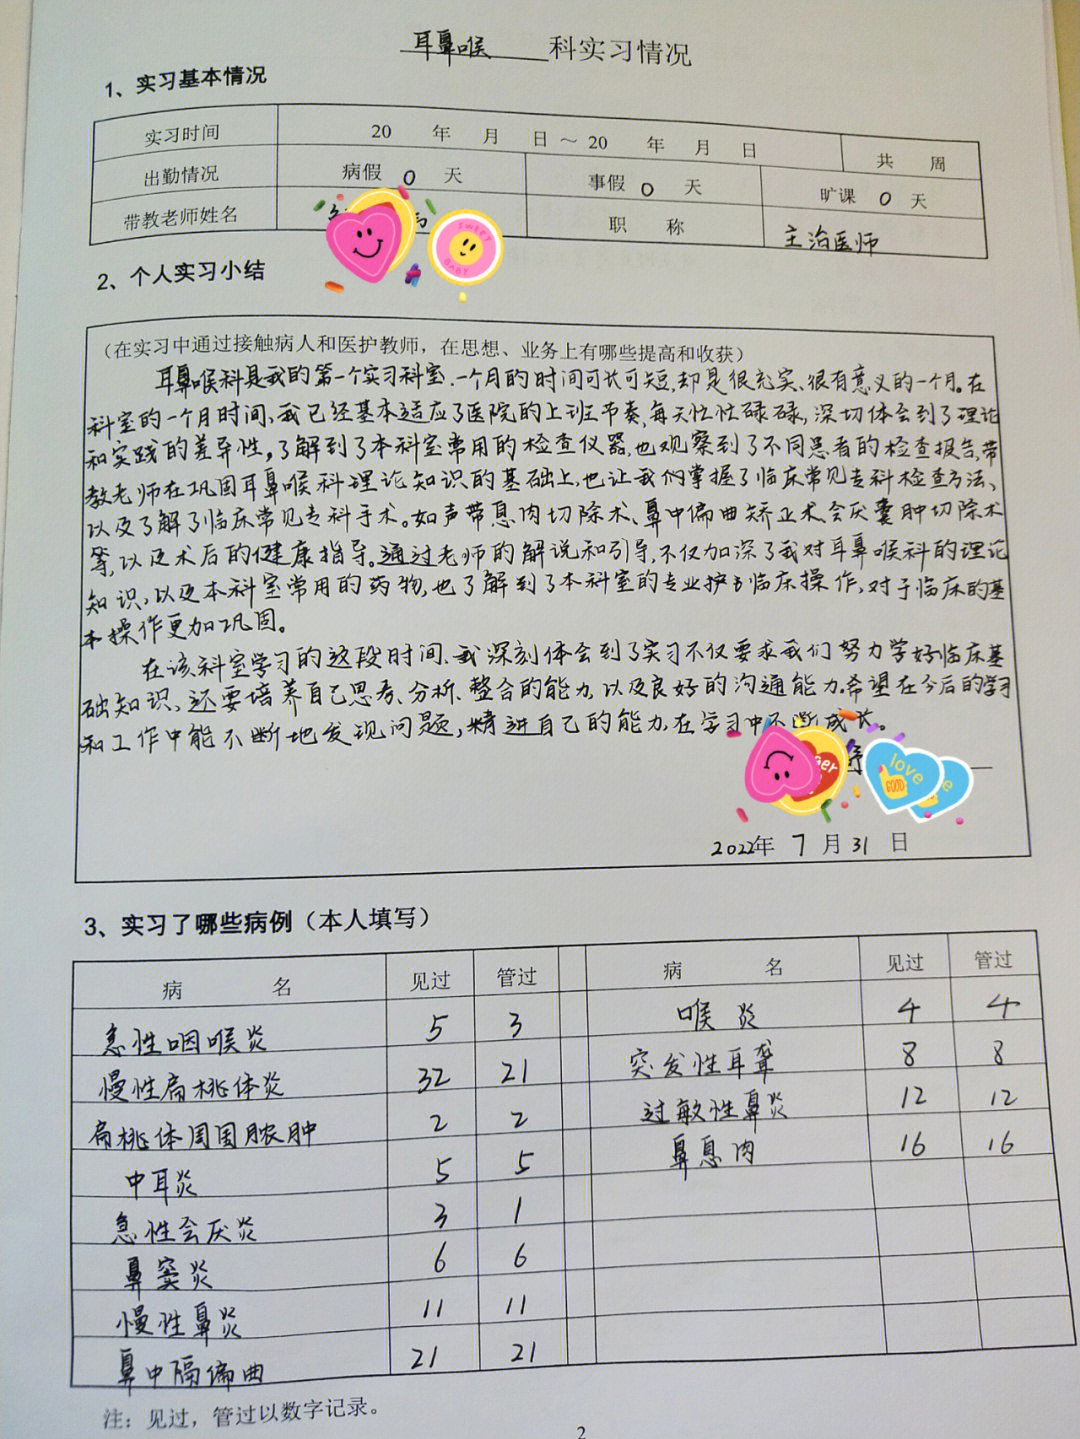 耳鼻喉 科实习情况
1、实习基本情况
实习时间 20 年 月 日 ~ 20 年 月 日 共 周
出勤情况 病假 0 天 事假 0 天 旷课 0 天
带教老师姓名 职 称 主治医师
2、个人实习小结
(在实习中通过接触病人和医护教师，在思想、业务上有哪些提高和收获)
耳鼻喉科是我的第一个实习科室、一个月的时间可长可短,却是很充实、很有意义的一个月。在
科室的一个月时间、我已经基本适应了医院的上班节奏,每天忙忙碌碌,深切体会到了理论
和实践的差异性。了解到了本科室常用的检查仪器,也观察到了不同患者的检查报告,带
教老师在巩固耳鼻喉科理论知识的基础上,也让我们掌握了临床常见专科检查方法、
以及了解了临床常见专科手术。如声带息肉切除术、鼻中偏曲矫正术、会厌囊肿切除术
等,以及术后的健康指导。通过老师的解说和引导,不仅加深了我对耳鼻喉科的理论
知识,以及本科室常用的药物,也了解到了本科室的专业护士临床操作,对于临床的基
本操作更加巩固。
在该科室学习的这段时间、我深刻体会到了实习不仅要求我们努力学好临床基
础知识、还要培养自己思考、分析、整合的能力,以及良好的沟通能力。希望在今后的学习
和工作中能不断地发现问题,精进自己的能力,在学习中不断成长。
2022年 7 月 31 日
SWEET
BABY
love
GOOD
3、实习了哪些病例（本人填写）
病 名 见过 管过 病 名 见过 管过
急性咽喉炎 5 3 喉炎 4 4
慢性扁桃体炎 32 21 突发性耳聋 8 8
扁桃体周围脓肿 2 2 过敏性鼻炎 12 12
中耳炎 5 5 鼻息肉 16 16
急性会厌炎 3 1
鼻窦炎 6 6
慢性鼻炎 11 11
鼻中隔偏曲 21 21
注：见过，管过以数字记录。
2